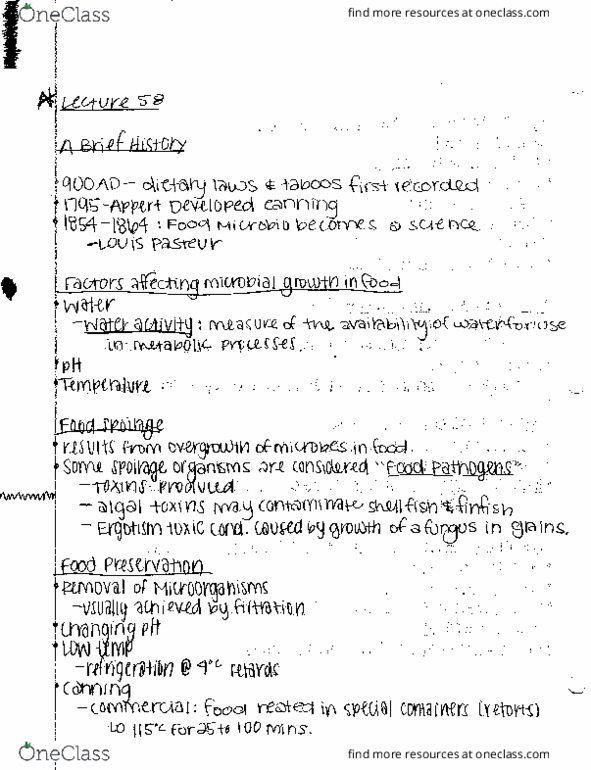 OneClass
find more resources at oneclass.com
Lecture 58
A Brief History
• 900AD - dietary laws & taboos first recorded
• 1795 - Appert Developed canning
• 1854-1864 : Food Microbio becomes a science
- Louis Pasteur
Factors affecting microbial growth in food
• Water
- Water activity : measure of the availability of water for use
in metabolic processes
• pH
• Temperature
Food Spoilage
• results from overgrowth of microbes in food.
• Some spoilage organisms are considered "Food Pathogens"
- Toxins produced
- algal toxins may contaminate shellfish & finfish
- Ergotism toxic cond. caused by growth of a fungus in grains.
Food Preservation
• Removal of Microorganisms
- usually achieved by filtration
• changing pH
• Low temp
- refrigeration @ 4°C retards
• canning
- commercial: food heated in special containers (retorts)
to 115°C for 25 to 100 mins.
OneClass
find more resources at oneclass.com